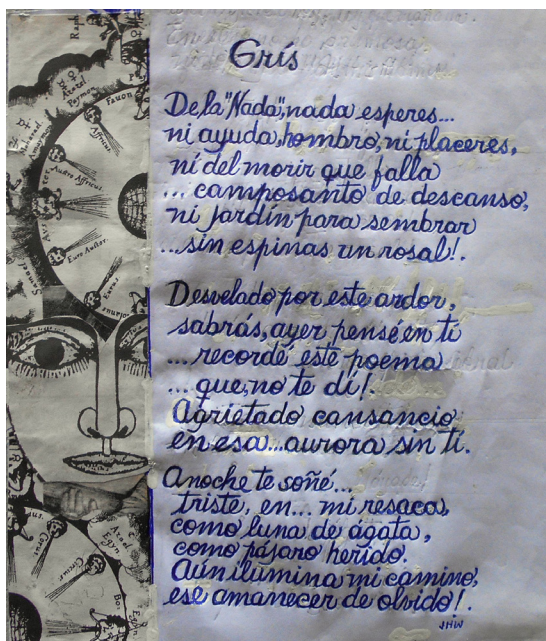 Grís
De la "Nada", nada esperes...
ni ayuda, hombro, ni placeres,
ni del morir que falla
... camposanto de descanso,
ni jardín para sembrar
...sin espinas un rosal!.
Desvelado por este ardor,
sabrás, ayer pensé en ti
...recordé este poema
...que, no te di!.
Agrietado cansancio
en esa...aurora sin ti.
Anoche te soñé...
triste, en... mi resaca,
como luna de ágata,
como pájaro herido.
Aún ilumina mi camino,
ese amanecer de olvido!.
JHW
Raph
Azazel
Paymon
Favon
Mahazael
Amaymon
Affricus
Austro Affricus
Auster
Euro Auster
Samael
Eurus
Corus
Circius
Azael
Egyn